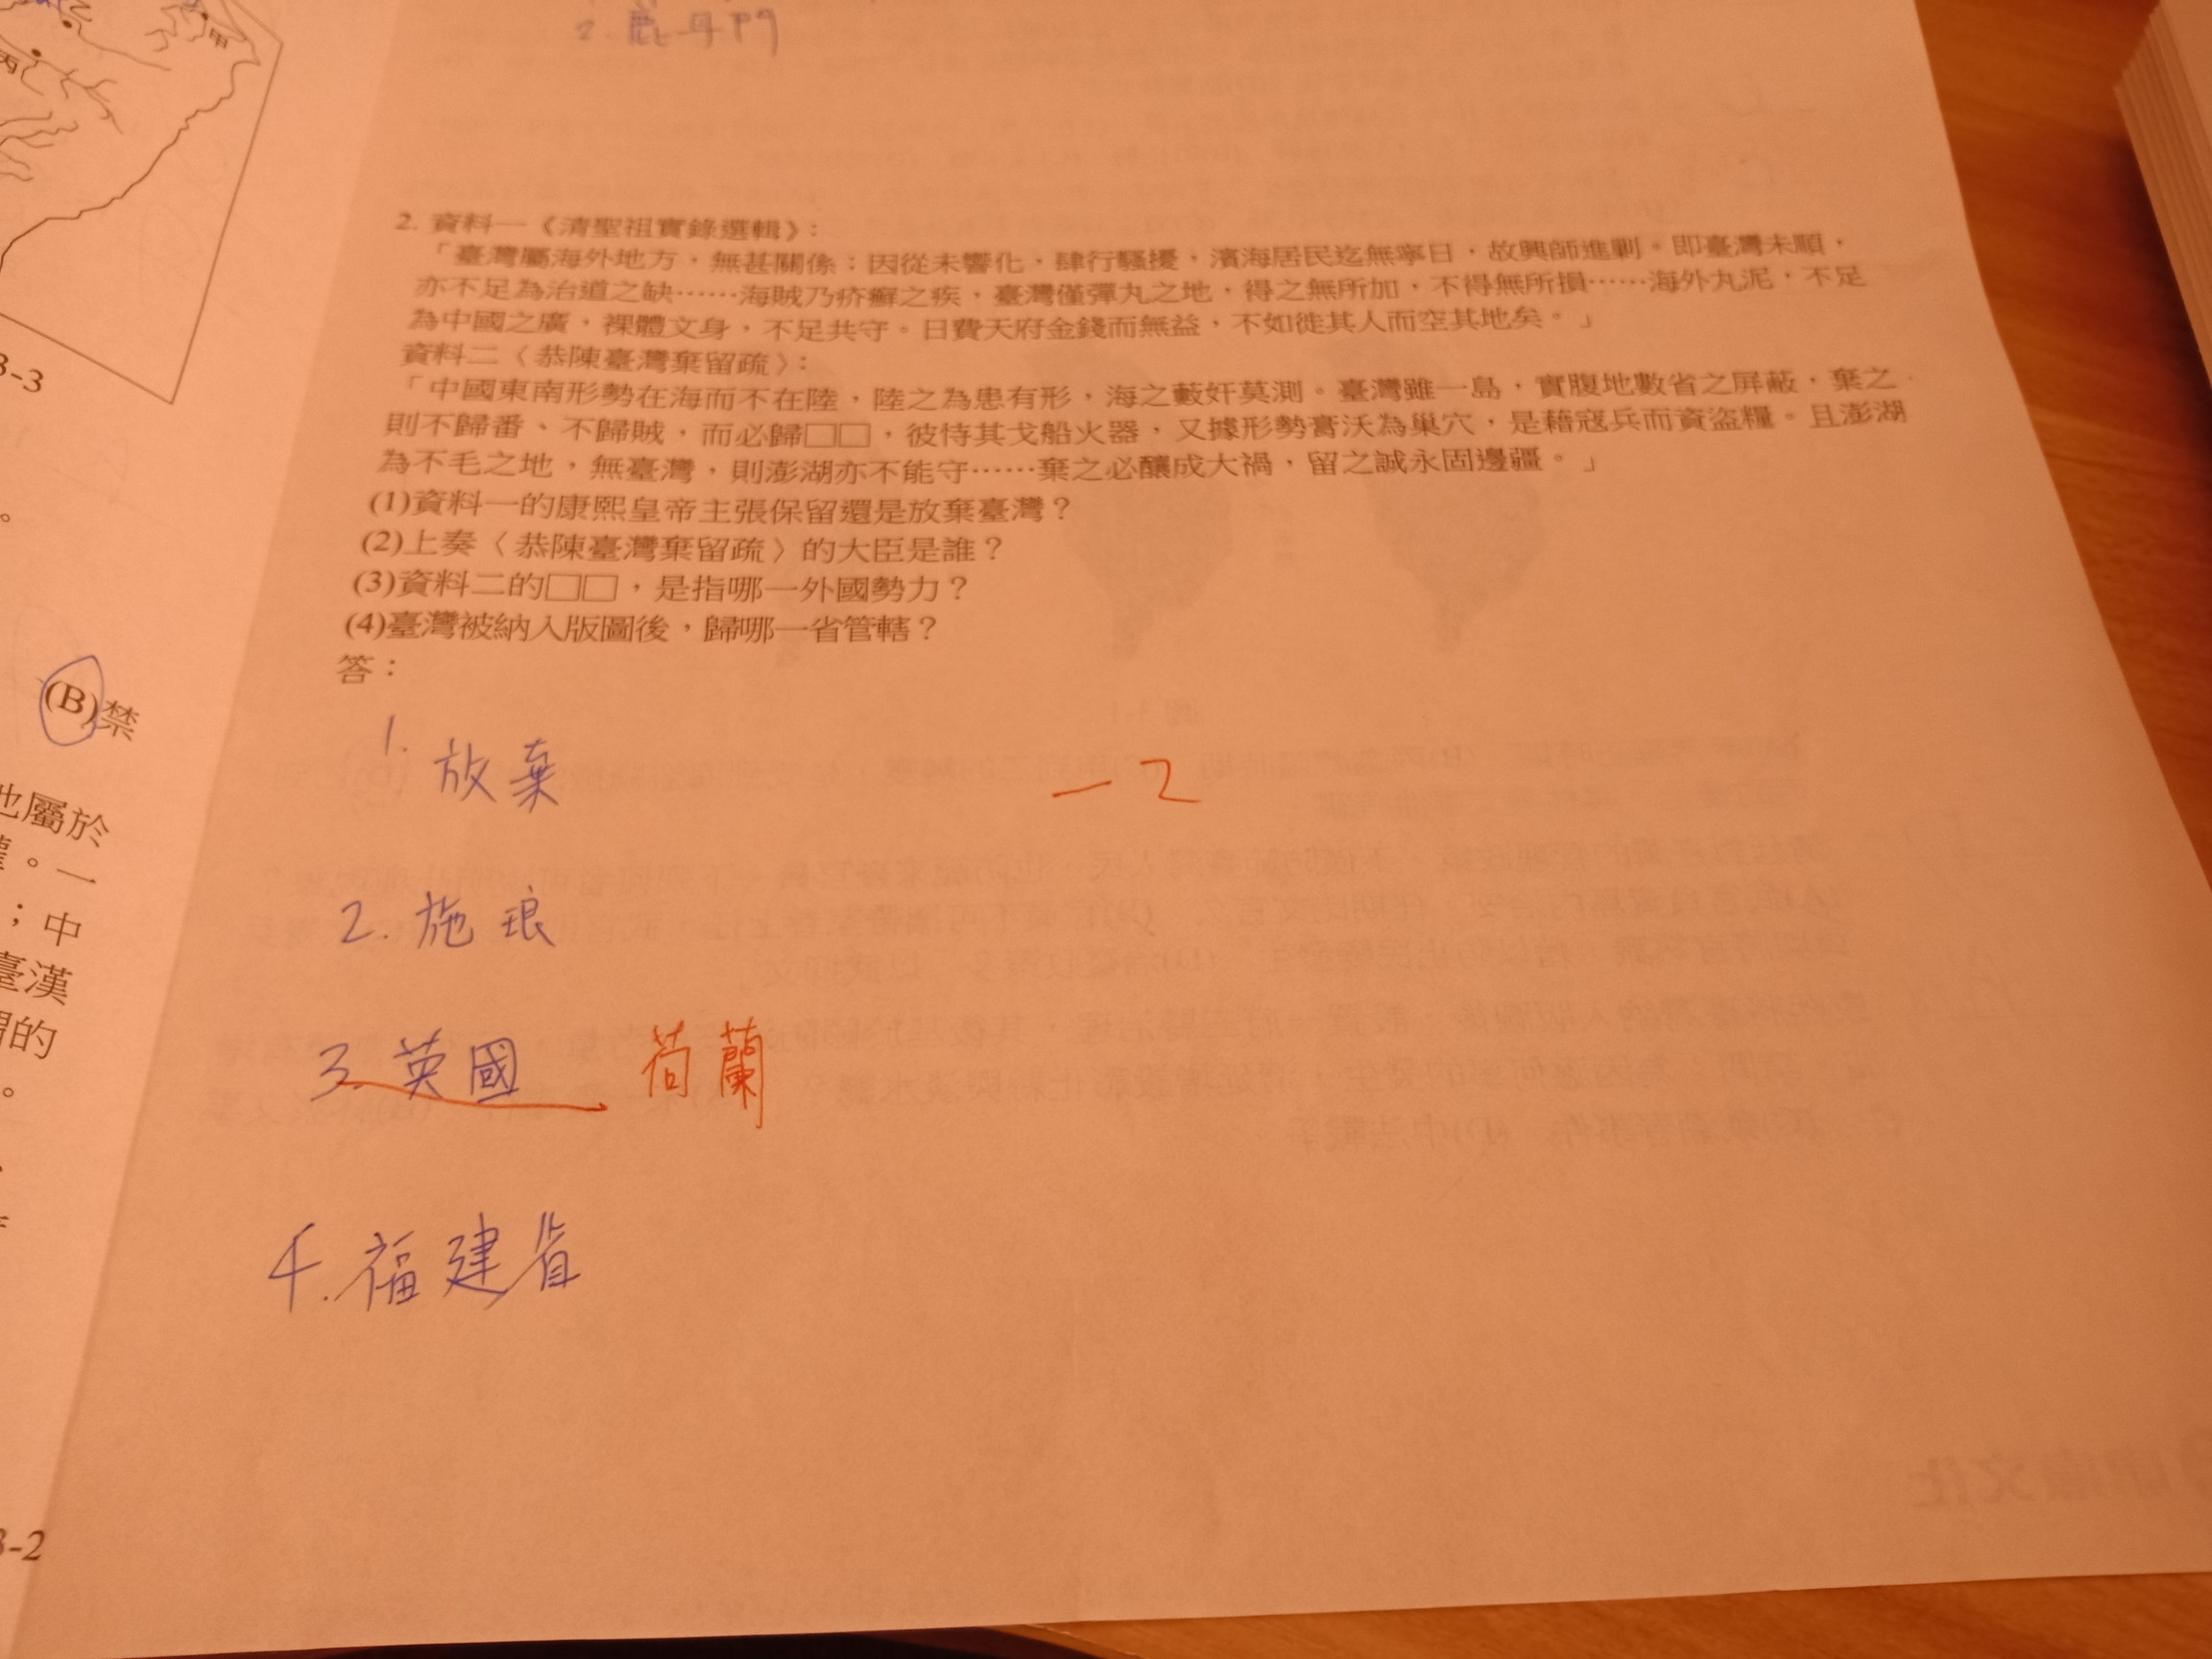 甲
丙
3-3
。
(B)禁
也屬於
。一
；中
臺漢
的
。
3-2
2. 鹿耳門
2. 資料一《清聖祖實錄選輯》：
「臺灣屬海外地方，無甚關係；因從未響化，肆行騷擾，濱海居民迄無寧日，故興師進剿。即臺灣未順，
亦不足為治道之缺……海賊乃疥癬之疾，臺灣僅彈丸之地，得之無所加，不得無所損……海外丸泥，不足
為中國之廣，裸體文身，不足共守。日費天府金錢而無益，不如徙其人而空其地矣。」
資料二〈恭陳臺灣棄留疏〉：
「中國東南形勢在海而不在陸，陸之為患有形，海之藪奸莫測。臺灣雖一島，實腹地數省之屏蔽，棄之
則不歸番、不歸賊，而必歸□□，彼恃其戈船火器，又據形勢膏沃為巢穴，是藉寇兵而資盜糧。且澎湖
為不毛之地，無臺灣，則澎湖亦不能守……棄之必釀成大禍，留之誠永固邊疆。」
(1)資料一的康熙皇帝主張保留還是放棄臺灣？
(2)上奏〈恭陳臺灣棄留疏〉的大臣是誰？
(3)資料二的□□，是指哪一外國勢力？
(4)臺灣被納入版圖後，歸哪一省管轄？
答：
1. 放棄
-2
2. 施琅
3. 英國 荷蘭
4. 福建省